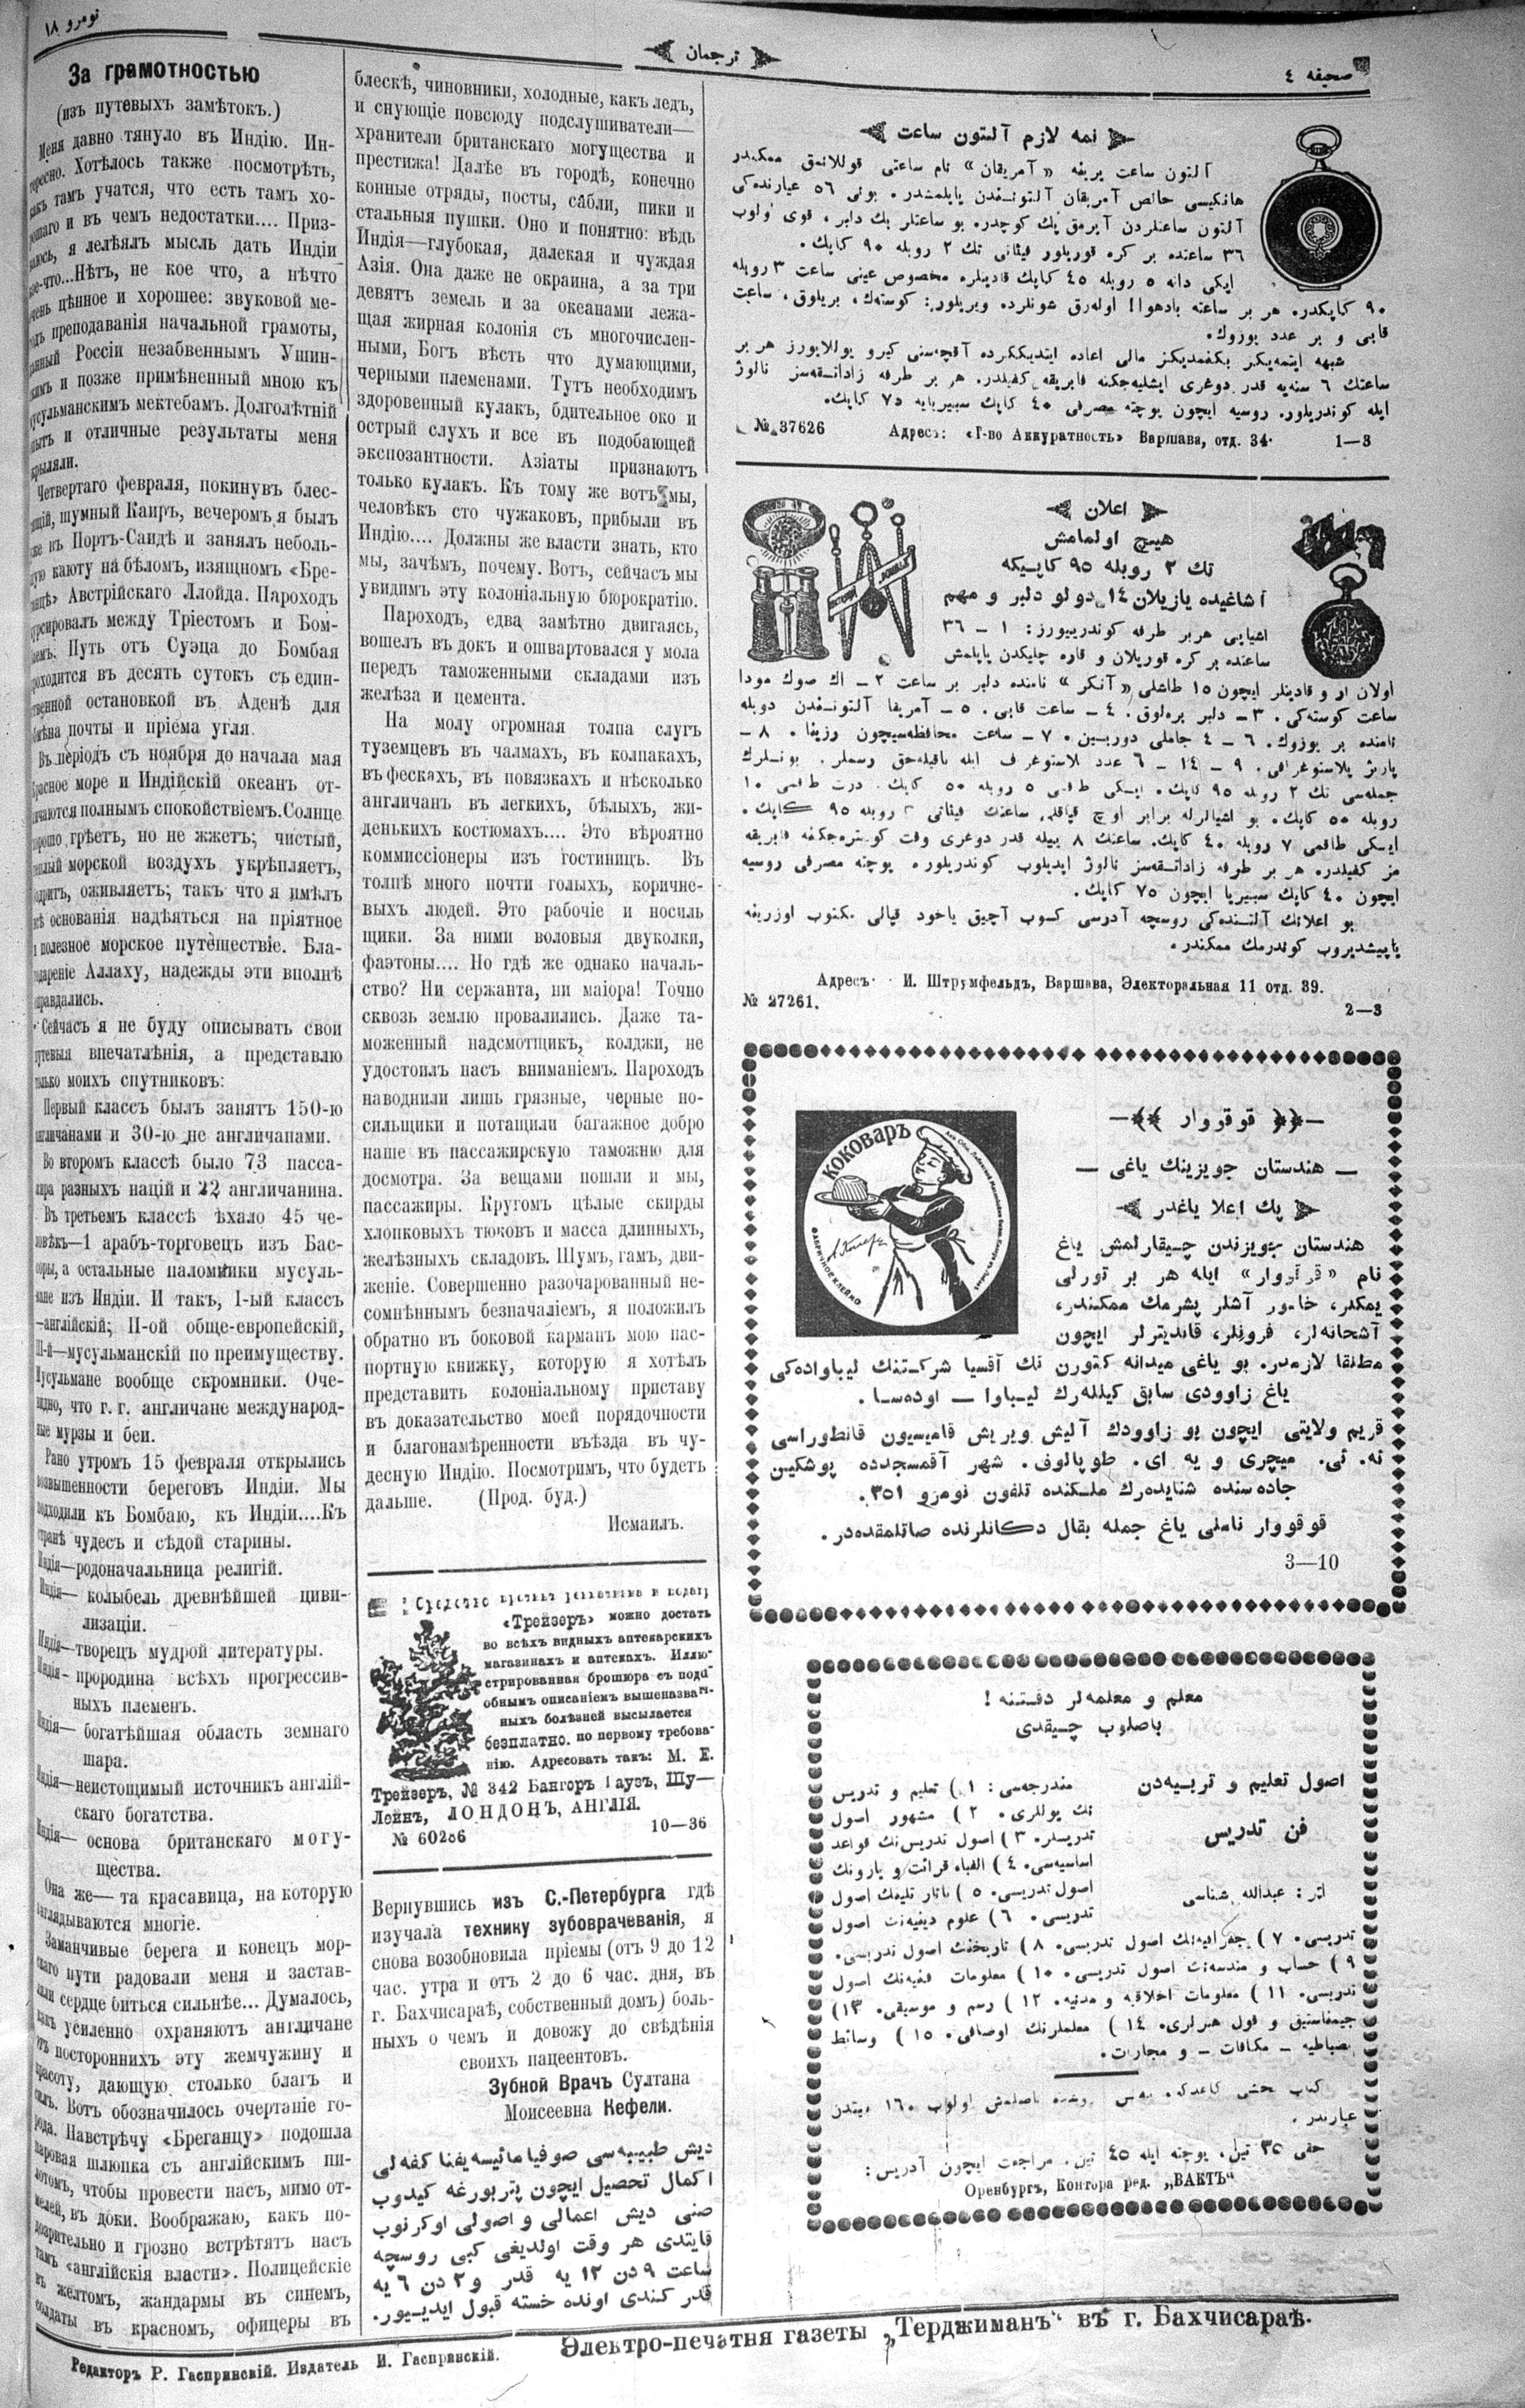 نومرو ١٨
ترجمان
صحيفه ٤
За грамотностью
(изъ путевыхъ замѣтокъ.)
Меня давно тянуло въ Индію. Ин-
тересно. Хотѣлось также посмотрѣть,
какъ тамъ учатся, что есть тамъ хо-
рошаго и въ чемъ недостатки.... Приз-
наюсь, я лелѣялъ мысль дать Индіи
кое-что...Нѣтъ, не кое что, а нѣчто
очень цѣнное и хорошее: звуковой ме-
тодъ преподаванія начальной грамоты,
данный Россіи незабвеннымъ Ушин-
скимъ и позже примѣненный мною къ
мусульманскимъ мектебамъ. Долголѣтній
опытъ и отличные результаты меня
окрыляли.
Четвертаго февраля, покинувъ блес-
тящій, шумный Каиръ, вечеромъ я былъ
уже въ Портъ-Саидѣ и занялъ неболь-
шую каюту на бѣломъ, изящномъ «Бре-
ганцѣ» Австрійскаго Ллойда. Пароходъ
курсировалъ между Тріестомъ и Бом-
беемъ. Путь отъ Суэца до Бомбая
проходится въ десять сутокъ съ един-
ственной остановкой въ Аденѣ для
обмѣна почты и пріема угля.
Въ періодъ съ ноября до начала мая
Красное море и Индійскій океанъ от-
личаются полнымъ спокойствіемъ. Солнце
хорошо грѣетъ, но не жжетъ; чистый,
теплый морской воздухъ укрѣпляетъ,
бодритъ, оживляетъ; такъ что я имѣлъ
всѣ основанія надѣяться на пріятное
и полезное морское путешествіе. Бла-
годареніе Аллаху, надежды эти вполнѣ
оправдались.
Сейчасъ я не буду описывать свои
путевыя впечатлѣнія, а представлю
только моихъ спутниковъ:
Первый классъ былъ занятъ 150-ю
англичанами и 30-ю не англичанами.
Во второмъ классѣ было 73 пасса-
жира разныхъ націй и 22 англичанина.
Въ третьемъ классѣ ѣхало 45 че-
ловѣкъ—1 арабъ-торговецъ изъ Бас-
соры, а остальные паломники мусуль-
мане изъ Индіи. И такъ, I-ый классъ
—англійскій; II-ой обще-европейскій,
III-й—мусульманскій по преимуществу.
Мусульмане вообще скромники. Оче-
видно, что г. г. англичане международ-
ные мурзы и беи.
Рано утромъ 15 февраля открылись
возвышенности береговъ Индіи. Мы
подходили къ Бомбаю, къ Индіи....Къ
странѣ чудесъ и сѣдой старины.
Индія—родоначальница религій.
Индія— колыбель древнѣйшей циви-
лизаціи.
Индія—творецъ мудрой литературы.
Индія— прородина всѣхъ прогрессив-
ныхъ племенъ.
Индія— богатѣйшая область земнаго
шара.
Индія—неистощимый источникъ англій-
скаго богатства.
Индія— основа британскаго могу-
щества.
Она же— та красавица, на которую
заглядываются многіе.
Заманчивые берега и конецъ мор-
скаго пути радовали меня и застав-
ляли сердце биться сильнѣе... Думалось,
какъ усиленно охраняютъ англичане
отъ постороннихъ эту жемчужину и
красоту, дающую столько благъ и
силъ. Вотъ обозначилось очертаніе го-
рода. Навстрѣчу «Бреганцу» подошла
паровая шлюпка съ англійскимъ пи-
лотомъ, чтобы провести насъ, мимо от-
мелей, въ доки. Воображаю, какъ по-
дозрительно и грозно встрѣтятъ насъ
тамъ «англійскія власти». Полицейскіе
въ желтомъ, жандармы въ синемъ,
солдаты въ красномъ, офицеры въ
блескѣ, чиновники, холодные, какъ ледъ,
и снующіе повсюду подслушиватели—
хранители британскаго могущества и
престижа! Далѣе въ городѣ, конечно
конные отряды, посты, сабли, пики и
стальныя пушки. Оно и понятно: вѣдь
Индія—глубокая, далекая и чуждая
Азія. Она даже не окраина, а за три
девять земель и за океанами лежа-
щая жирная колонія съ многочислен-
ными, Богъ вѣсть что думающими,
черными племенами. Тутъ необходимъ
здоровенный кулакъ, бдительное око и
острый слухъ и все въ подобающей
экспозантности. Азіаты признаютъ
только кулакъ. Къ тому же вотъ мы,
человѣкъ сто чужаковъ, прибыли въ
Индію.... Должны же власти знать, кто
мы, зачѣмъ, почему. Вотъ, сейчасъ мы
увидимъ эту колоніальную бюрократію.
Пароходъ, едва замѣтно двигаясь,
вошелъ въ докъ и ошвартовался у мола
передъ таможенными складами изъ
желѣза и цемента.
На молу огромная толпа слугъ
туземцевъ въ чалмахъ, въ колпакахъ,
въ фескахъ, въ повязкахъ и нѣсколько
англичанъ въ легкихъ, бѣлыхъ, жи-
денькихъ костюмахъ.... Это вѣроятно
коммиссіонеры изъ гостиницъ. Въ
толпѣ много почти голыхъ, коричне-
выхъ людей. Это рабочіе и носиль
щики. За ними воловыя двуколки,
фаэтоны.... Но гдѣ же однако началь-
ство? Ни сержанта, ни маіора! Точно
сквозь землю провалились. Даже та-
моженный надсмотщикъ, колджи, не
удостоилъ насъ вниманіемъ. Пароходъ
наводнили лишь грязные, черные но-
сильщики и потащили багажное добро
наше въ пассажирскую таможню для
досмотра. За вещами пошли и мы,
пассажиры. Кругомъ цѣлые скирды
хлопковыхъ тюковъ и масса длинныхъ,
желѣзныхъ складовъ. Шумъ, гамъ, дви-
женіе. Совершенно разочарованный не-
сомнѣннымъ безначаліемъ, я положилъ
обратно въ боковой карманъ мою пас-
портную книжку, которую я хотѣлъ
представить колоніальному приставу
въ доказательство моей порядочности
и благонамѣренности въѣзда въ чу-
десную Индію. Посмотримъ, что будетъ
дальше. (Прод. буд.)
Исмаилъ.
Средство противъ ревматизма и подагр
«Трейзеръ» можно достать
во всѣхъ видныхъ аптекарскихъ
магазинахъ и аптекахъ. Иллю-
стрированная брошюра съ подр-
обнымъ описаніемъ вышеназван-
ныхъ болѣзней высылается
безплатно. по первому требова-
нію. Адресовать такъ: М. Е.
Трейзеръ, № 342 Бангоръ Гаузъ, Шу—
Лейнъ, ЛОНДОНЪ, АНГЛІЯ.
№ 60286 10—36
Вернувшись изъ С.-Петербурга гдѣ
изучала технику зубоврачеванія, я
снова возобновила пріемы (отъ 9 до 12
час. утра и отъ 2 до 6 час. дня, въ
г. Бахчисараѣ, собственный домъ) боль-
ныхъ о чемъ и довожу до свѣдѣнія
своихъ пацеентовъ.
Зубной Врачъ Султана
Моисеевна Кефели.
ديش طبيبه‌سى صوفيا مائيسه‌يفنا كفه‌لى
اكمال تحصيل ايچون پتربورغه كيدوب
صنى ديش اعمالى و اصولى اوكرنوب
قايتدى هر وقت اولديغى كبى روسچه
ساعت ٩ دن ١٢ يه قدر و ٢ دن ٦ يه
قدر كندى اونده خسته قبول ايدييور.
نمه لازم آلتون ساعت
آلتون ساعت يرينه «آمريقان» نام ساعتى قوللانمق ممكندر
هانكيسى خالص آمريقان آلتونندن ياپلمشدر. بونى ٥٦ عيارنده‌كى
آلتون ساعتلردن آيرمق پك كوچدر. بو ساعتلر پك دلبر، قوى اولوب
٣٦ ساعتده بر كره قوريلور فيئاتى تك ٢ روبله ٩٠ كاپك.
ايكى دانه ٥ روبله ٤٥ كاپك قادينلره مخصوص عينى ساعت ٣ روبله
٩٠ كاپكدر. هر بر ساعته بادهوا! اوله‌رق شونلرده ويريلور: كوستەك، بريلوق، ساعت
قابى و بر عدد يوزوك.
شبهه ايتمه‌يكز بكنمديكز مالى اعاده ايتديككزده آقچه‌سنى كيرو يوللايورز هر بر
ساعتك ٦ سنه‌يه قدر دوغرى ايشليه‌جكنه فابريقه كفيلدر. هر بر طرفه زاداتقه‌سز نالوژ
ايله كوندريلور. روسيه ايچون پوچته مصرفى ٤٠ كاپك سيبيريايه ٧٥ كاپك.
№ 37626 Адресъ: «Т-во Аккуратность» Варшава, отд. 34· 1—3
اعلان
هيچ اولمامش
تك ٢ روبله ٩٥ كاپيكه
آشاغيده يازيلان ١٤ دولو دلبر و مهم
اشيايى هربر طرفه كوندرييورز: ١ – ٣٦
ساعتده بر كره قوريلان و قاره چليكدن ياپلمش
اولان ار و قادينلر ايچون ١٥ طاشلى «آنكر» نامنده دلبر بر ساعت ٢ – اك صوك مودا
ساعت كوسته‌كى. ٣ – دلبر بره‌لوق. ٤ – ساعت قابى. ٥ – آمريقا آلتونندن دوبله
نامنده بر يوزوك. ٦ – ٤ جاملى دوربين. ٧ – ساعت محافظه‌سيچون رزينا. ٨ –
جمله‌سى تك ٢ روبله ٩٥ كاپك. ايكى طاقمى ٥ روبله ٥٠ كاپك. درت طاقمى ١٠
روبله ٥٠ كاپك. بو اشيالرله برابر اوچ قپاقلى ساعتك فيئاتى ٣ روبله ٩٥ كاپك.
ايكى طاقمى ٧ روبله ٤٠ كاپك. ساعتك ٨ ييله قدر دوغرى وقت كوستره‌جكنه فابريقه
مز كفيلدر. هر بر طرفه زاداتقه‌سز نالوژ ايديلوب كوندريلور. پوچته مصرفى روسيه
ايچون ٤٠ كاپك سيبيريا ايچون ٧٥ كاپك.
بو اعلانك آلتنده‌كى روسچه آدرسى كسوب آچيق ياخود قپالى مكتوب اوزرينه
ياپيشديروب كوندرمك ممكندر.
Адресъ· И. Штрумфельдъ, Варшава, Электоральная 11 отд. 39.
№ 27261. 2—3
КОКОВАРЪ
ФАБРИЧНОЕ КЛЕЙМО
قوقووار
هندستان جويزينك ياغى
پك اعلا ياغدر
هندستان جويزندن چيقارلمش ياغ
نام «قوقووار» ايله هر بر تورلى
يمكلر، خامور آشلر پشرمك ممكندر،
آشخانه‌لر، فرونلر، قانديترلر ايچون
مطلقا لازمدر. بو ياغى ميدانه كتورن تك آقسيا شركتنك ليباواده‌كى
ياغ زاوودى سابق كيللەرك ليباوا — اوده‌سا.
قريم ولايتى ايچون بو زاوودك آليش ويريش قاميسيون قانطوراسى
نه. ئى. ميچرى و يه اى. طوپالوف. شهر آقمسجدده پوشكين
جاده‌سنده شنايده‌رك ملكنده تلفون نومرو ٣٥١.
قوقووار ناملى ياغ جمله بقال دكانلرنده صاتلمقده‌در.
3—10
معلم و معلمه‌لر دقتنه!
باصلوب چيقدى
اصول تعليم و تربيه‌دن
فن تدريس
اثر: عبدالله شناسى
مندرجه‌سى: ١) تعليم و تدريس
نك يوللرى. ٢) مشهور اصول
تدريسلر. ٣) اصول تدريس‌نك قواعد
اساسيه‌سى. ٤) الفباء قرائت و يازونك
اصول تدريسى. ٥) تاتار تلينك اصول
تدريسى. ٦) علوم دينيه‌نك اصول
تدريسى. ٧) جغرافيه‌نك اصول تدريسى. ٨) تاريخنك اصول تدريسى.
٩) حساب و هندسه‌نك اصول تدريسى. ١٠) معلومات فنيه‌نك اصول
تدريسى. ١١) معلومات اخلاقيه و مدنيه. ١٢) رسم و موسيقى. ١٣)
جيمناستيق و قول هنرلرى. ١٤) معلملرنك اوصافى. ١٥) وسائط
انضباطيه – مكافات – و مجازات.
كتاب يخشى كاغدكه باصلمش اولوب ١٦٠ بيتدن
عبارتدر.
حقى ٣٥ تين، پوچته ايله ٤٥ تين. مراجعت ايچون آدريس:
Оренбургъ, Контора ред. „ВАКТЪ“
Редакторъ Р. Гаспринскій. Издатель И. Гаспринскій.
Электро-печатня газеты „Терджиманъ“ въ г. Бахчисараѣ.